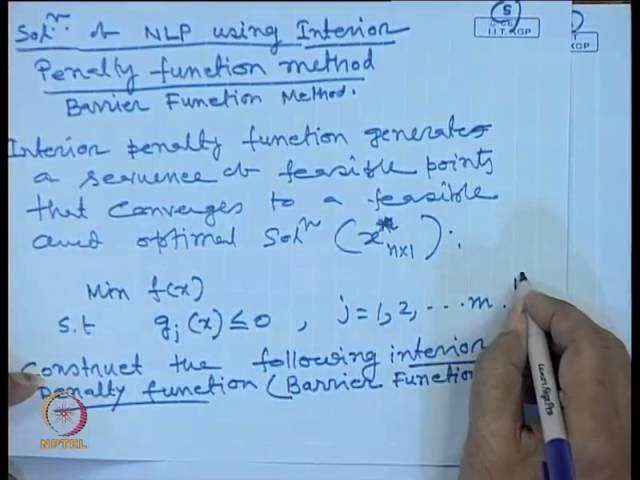 Sol^n of NLP using Interior
Penalty function method
Barrier Function Method.
Interior penalty function generates
a sequence of feasible points
that converges to a feasible
and optimal sol^n (x^*_{n×1}):
Min f(x)
s.t g_j(x) ≤ 0 , j = 1, 2, ... m.
Construct the following interior
penalty function (Barrier Function
5
I.I.T. KGP
KGP
NPTEL